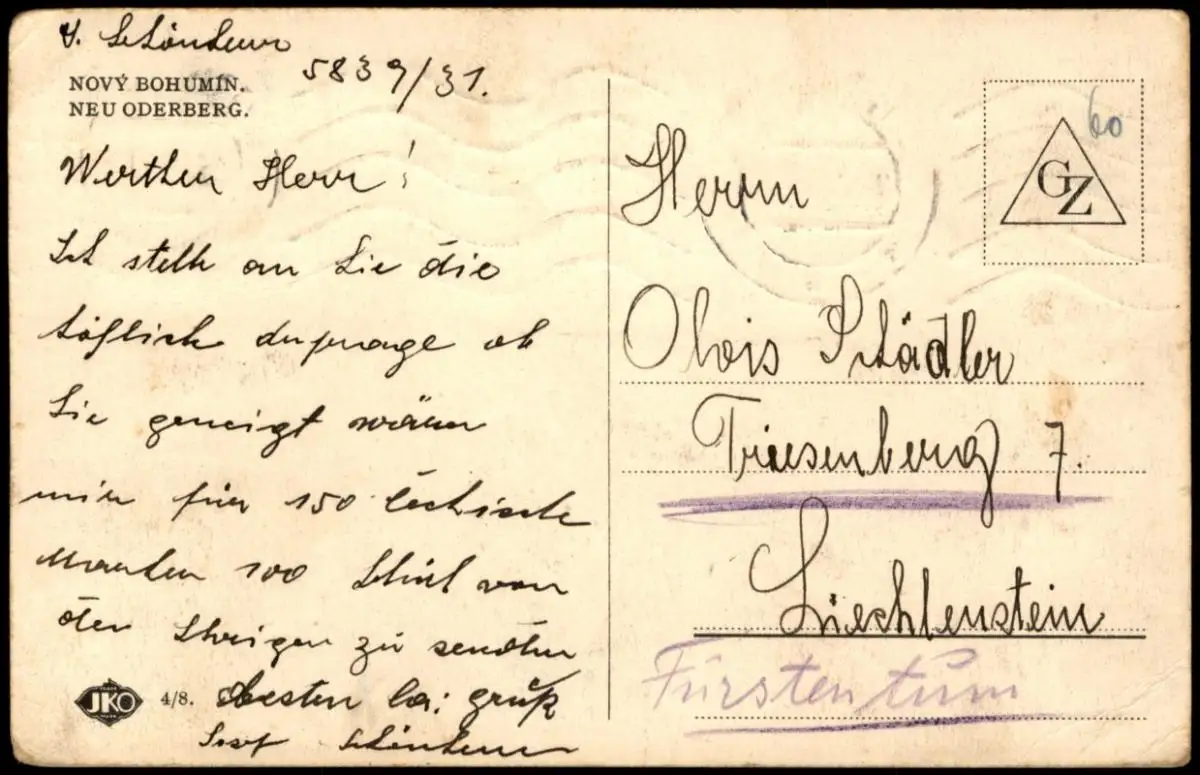 J. Schönthur
5839/31.
NOVÝ BOHUMÍN.
NEU ODERBERG.
Werthen Herr!
Ich stelle an Sie die
höflich anfrage ob
Sie geneigt wären
mir für 150 čechische
Marken 100 Stück von
den Ihrigen zu senden
besten gruß
Josef
JKO
4/8.
60
GZ
Herrn
Olois Städler
Triesenberg 7.
Liechtenstein
Fürstentum